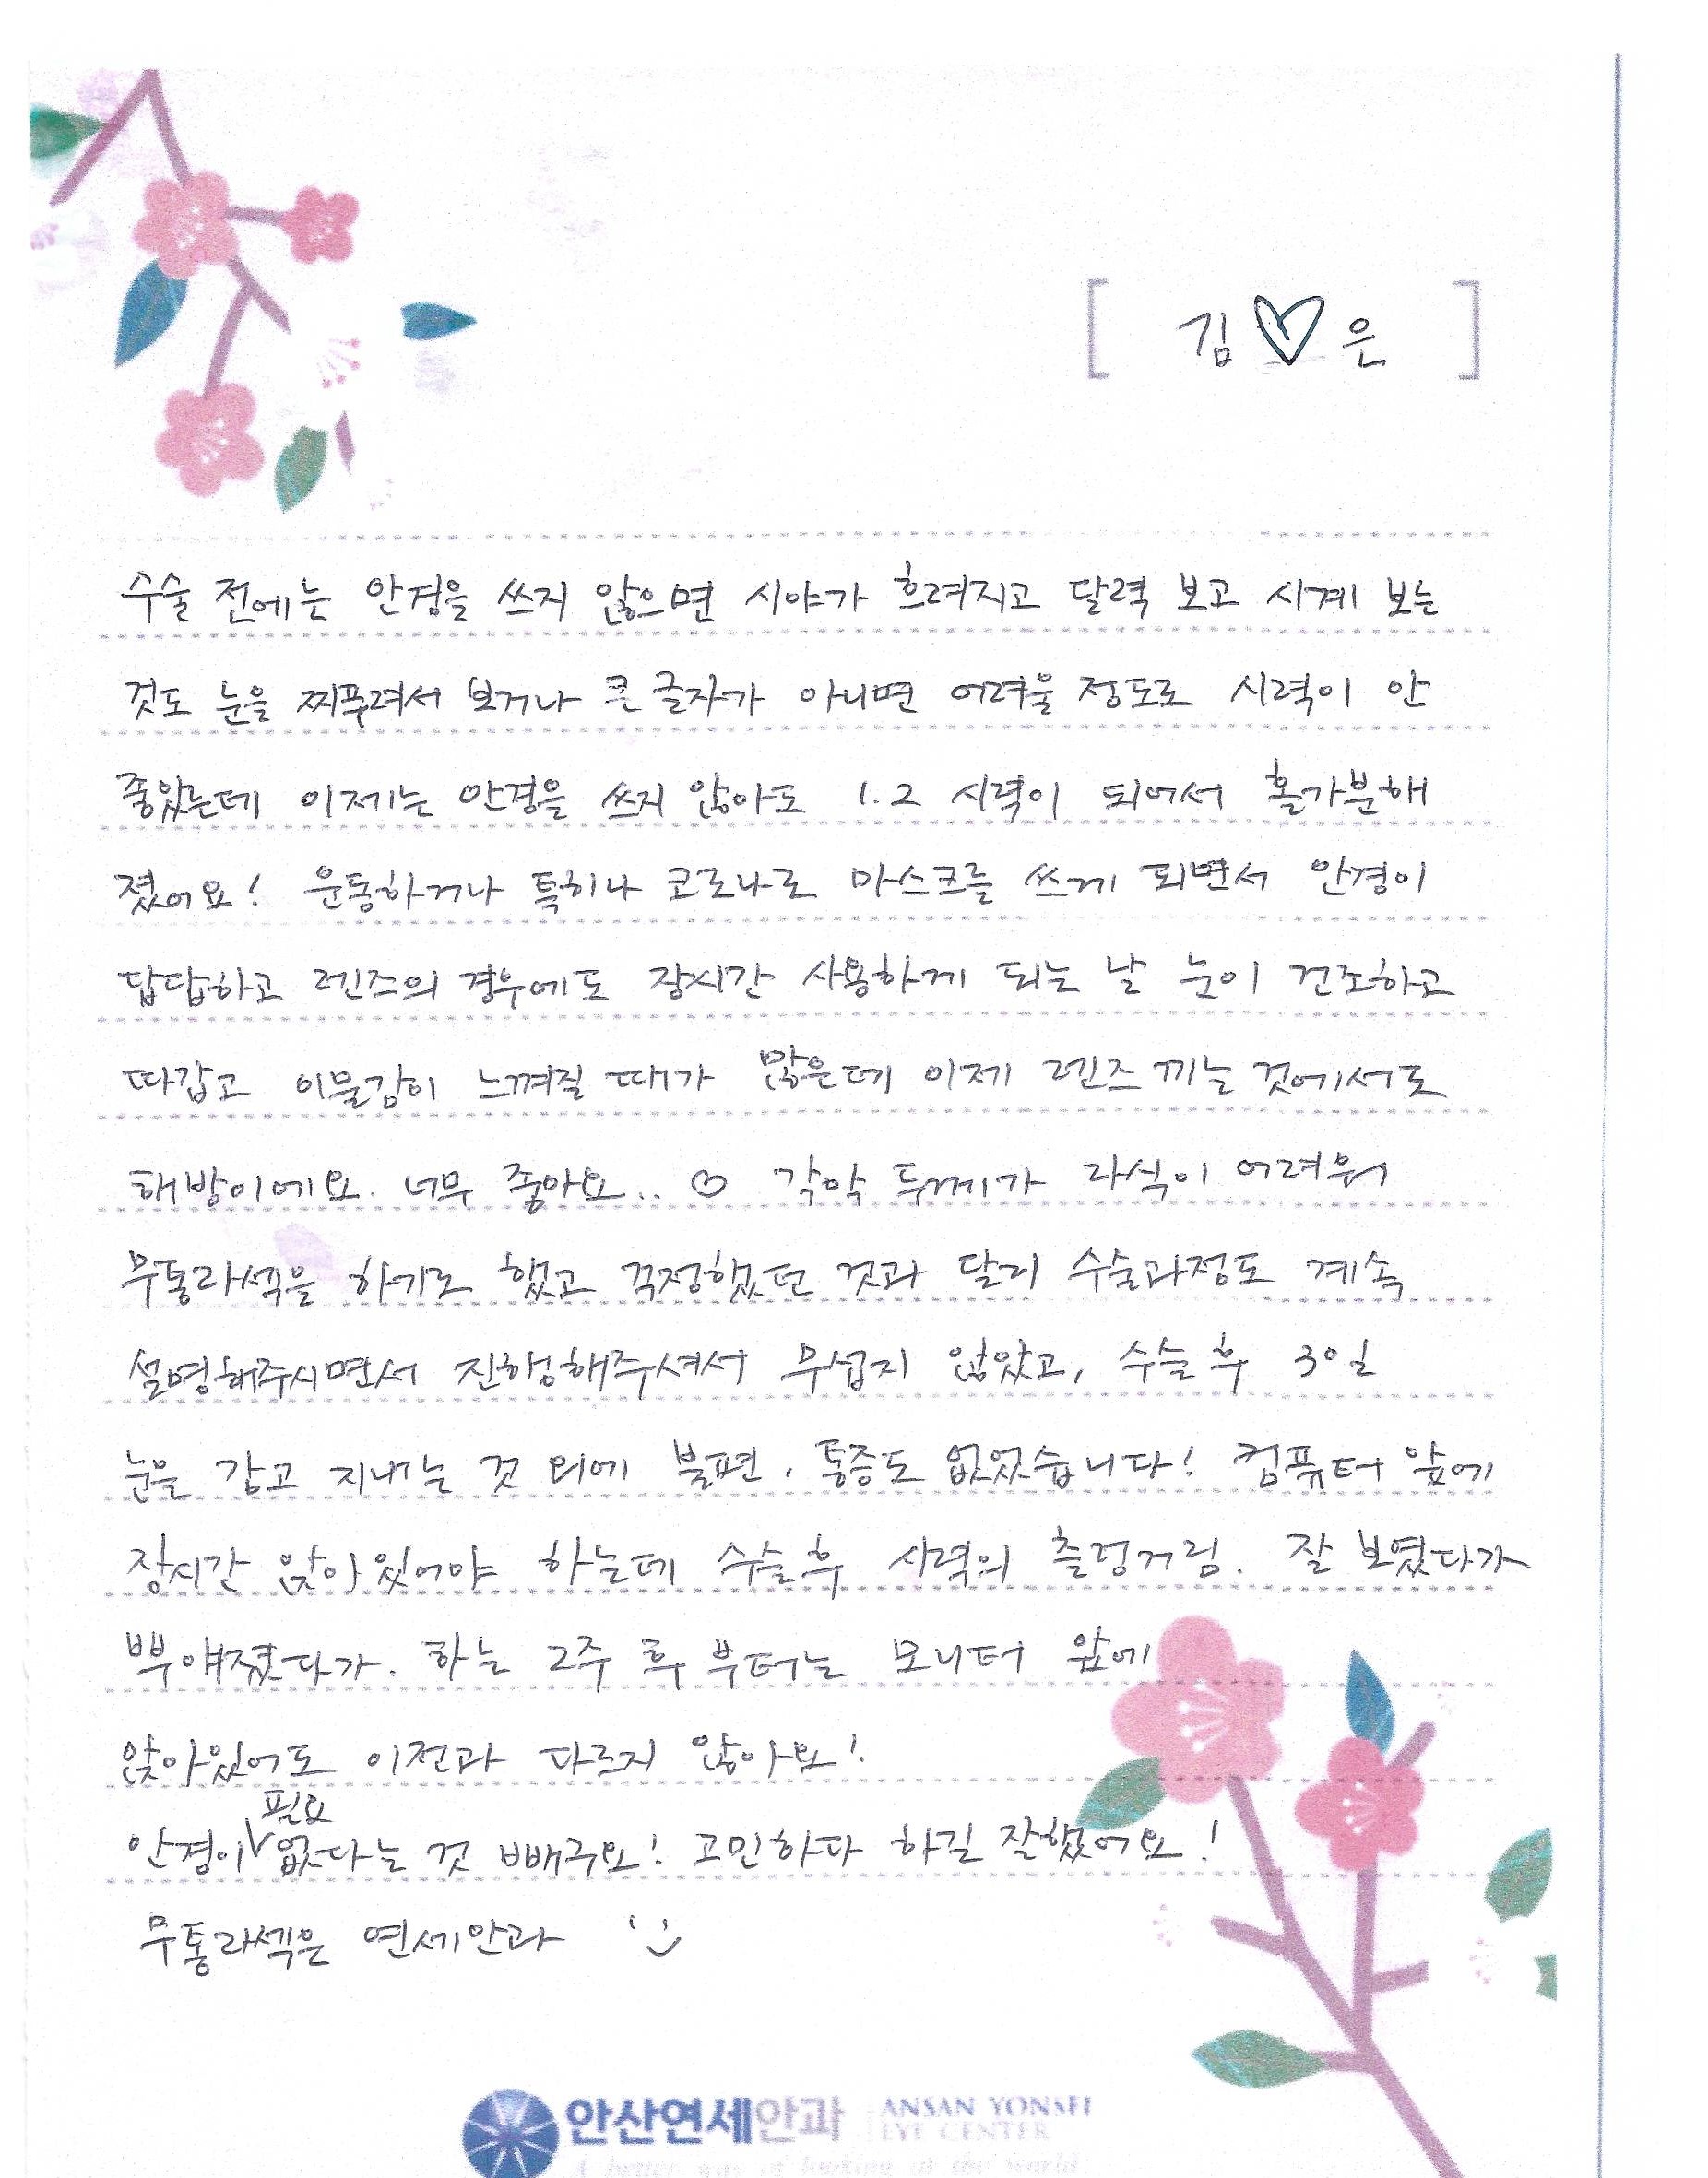 [ 김♡은 ]
수술 전에는 안경을 쓰지 않으면 시야가 흐려지고 달력 보고 시계 보는
것도 눈을 찌푸려서 보거나 큰 글자가 아니면 어려울 정도로 시력이 안
좋았는데 이제는 안경을 쓰지 않아도 1.2 시력이 되어서 홀가분해
졌어요! 운동하거나 특히나 코로나로 마스크를 쓰게 되면서 안경이
답답하고 렌즈의 경우에도 장시간 사용하게 되는 날 눈이 건조하고
따갑고 이물감이 느껴질 때가 많은데 이제 렌즈 끼는 것에서도
해방이에요. 너무 좋아요.. ♡ 각막 두께가 라식이 어려워
무통라섹을 하기로 했고 걱정했던 것과 달리 수술과정도 계속
설명해주시면서 진행해주셔서 무섭지 않았고, 수술 후 3일
눈을 감고 지내는 것 외에 불편, 통증도 없었습니다! 컴퓨터 앞에
장시간 앉아있어야 하는데 수술 후 시력의 출렁거림. 잘 보였다가
뿌얘졌다가. 하는 2주 후 부터는 모니터 앞에
앉아있어도 이전과 다르지 않아요!
안경이 필요 없다는 것 빼구요! 고민하다 하길 잘했어요!
무통라섹은 연세안과 :)
안산연세안과 ANSAN YONSEI
EYE CENTER
A better way of looking at the world